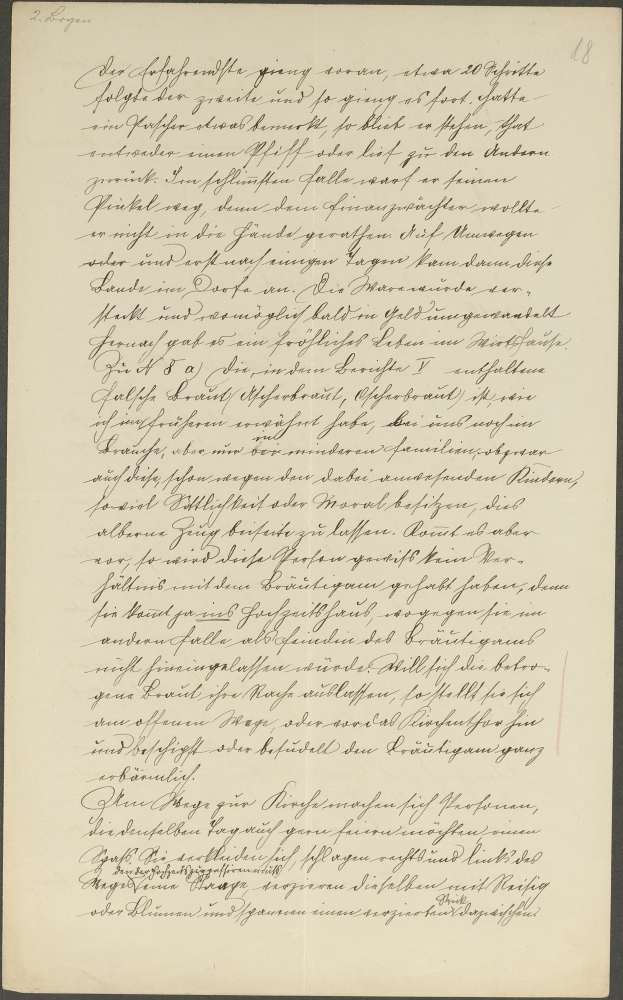 2. Bogen
18
Der Erfahrendste gieng voran, etwa 20 Schritte
folgte der zweite und so gieng es fort. Hatte
ein Pascher etwas bemerkt, so blieb er stehen, that
entweder einen Pfiff oder lief zu den Andern
zurück. Im schlimmsten Falle warf er seinen
Pinkel weg, denn dem Finanzwächter wollte
er nicht in die Hände gerathen. Auf Umwegen
oder und erst nach einigen Tagen kam dann diese
Bande im Dorfe an. Die Ware wurde ver-
steckt und womöglich bald in Geld umgewandelt
Hernach gab es ein fröhliches Leben im Wirtshause.
Zu N 8 a) Die, in dem Berichte V enthaltene
falsche Braut (Ascherbraut, Oscherbraut) ist, wie
ich im früheren erwähnt habe, bei uns noch im
Brauche, aber nur bei minderen Familien, obzwar
auch diese, schon wegen den dabei anwesenden Kindern,
so viel Sittlichkeit oder Moral besitzen, dies
alberne Zeug beiseite zu lassen. Kom̅t es aber
vor, so wird diese Person gewiss kein Ver-
hältnis mit dem Bräutigam gehabt haben, denn
sie kom̅t ja ins Hochzeitshaus, wogegen sie im
andern Falle als Feindin des Bräutigams
nicht hineingelassen würde. Will sich die betro-
gene Braut ihre Rache auslassen, so stellt sie sich
am offenen Wege, oder vor das Kirchenthor hin
und beschipft oder besudelt den Bräutigam ganz
erbärmlich.
Am Wege zur Kirche machen sich Personen,
die denselben Tag auch gern feiern möchten einen
Spass. Sie verkleiden sich, schlagen rechts und links des
den der Hochzeitszug passiren muss
Weges eine Stange, verzieren dieselben mit Reisig
oder Blumen und spannen einen verzierten Strick dazwischen.